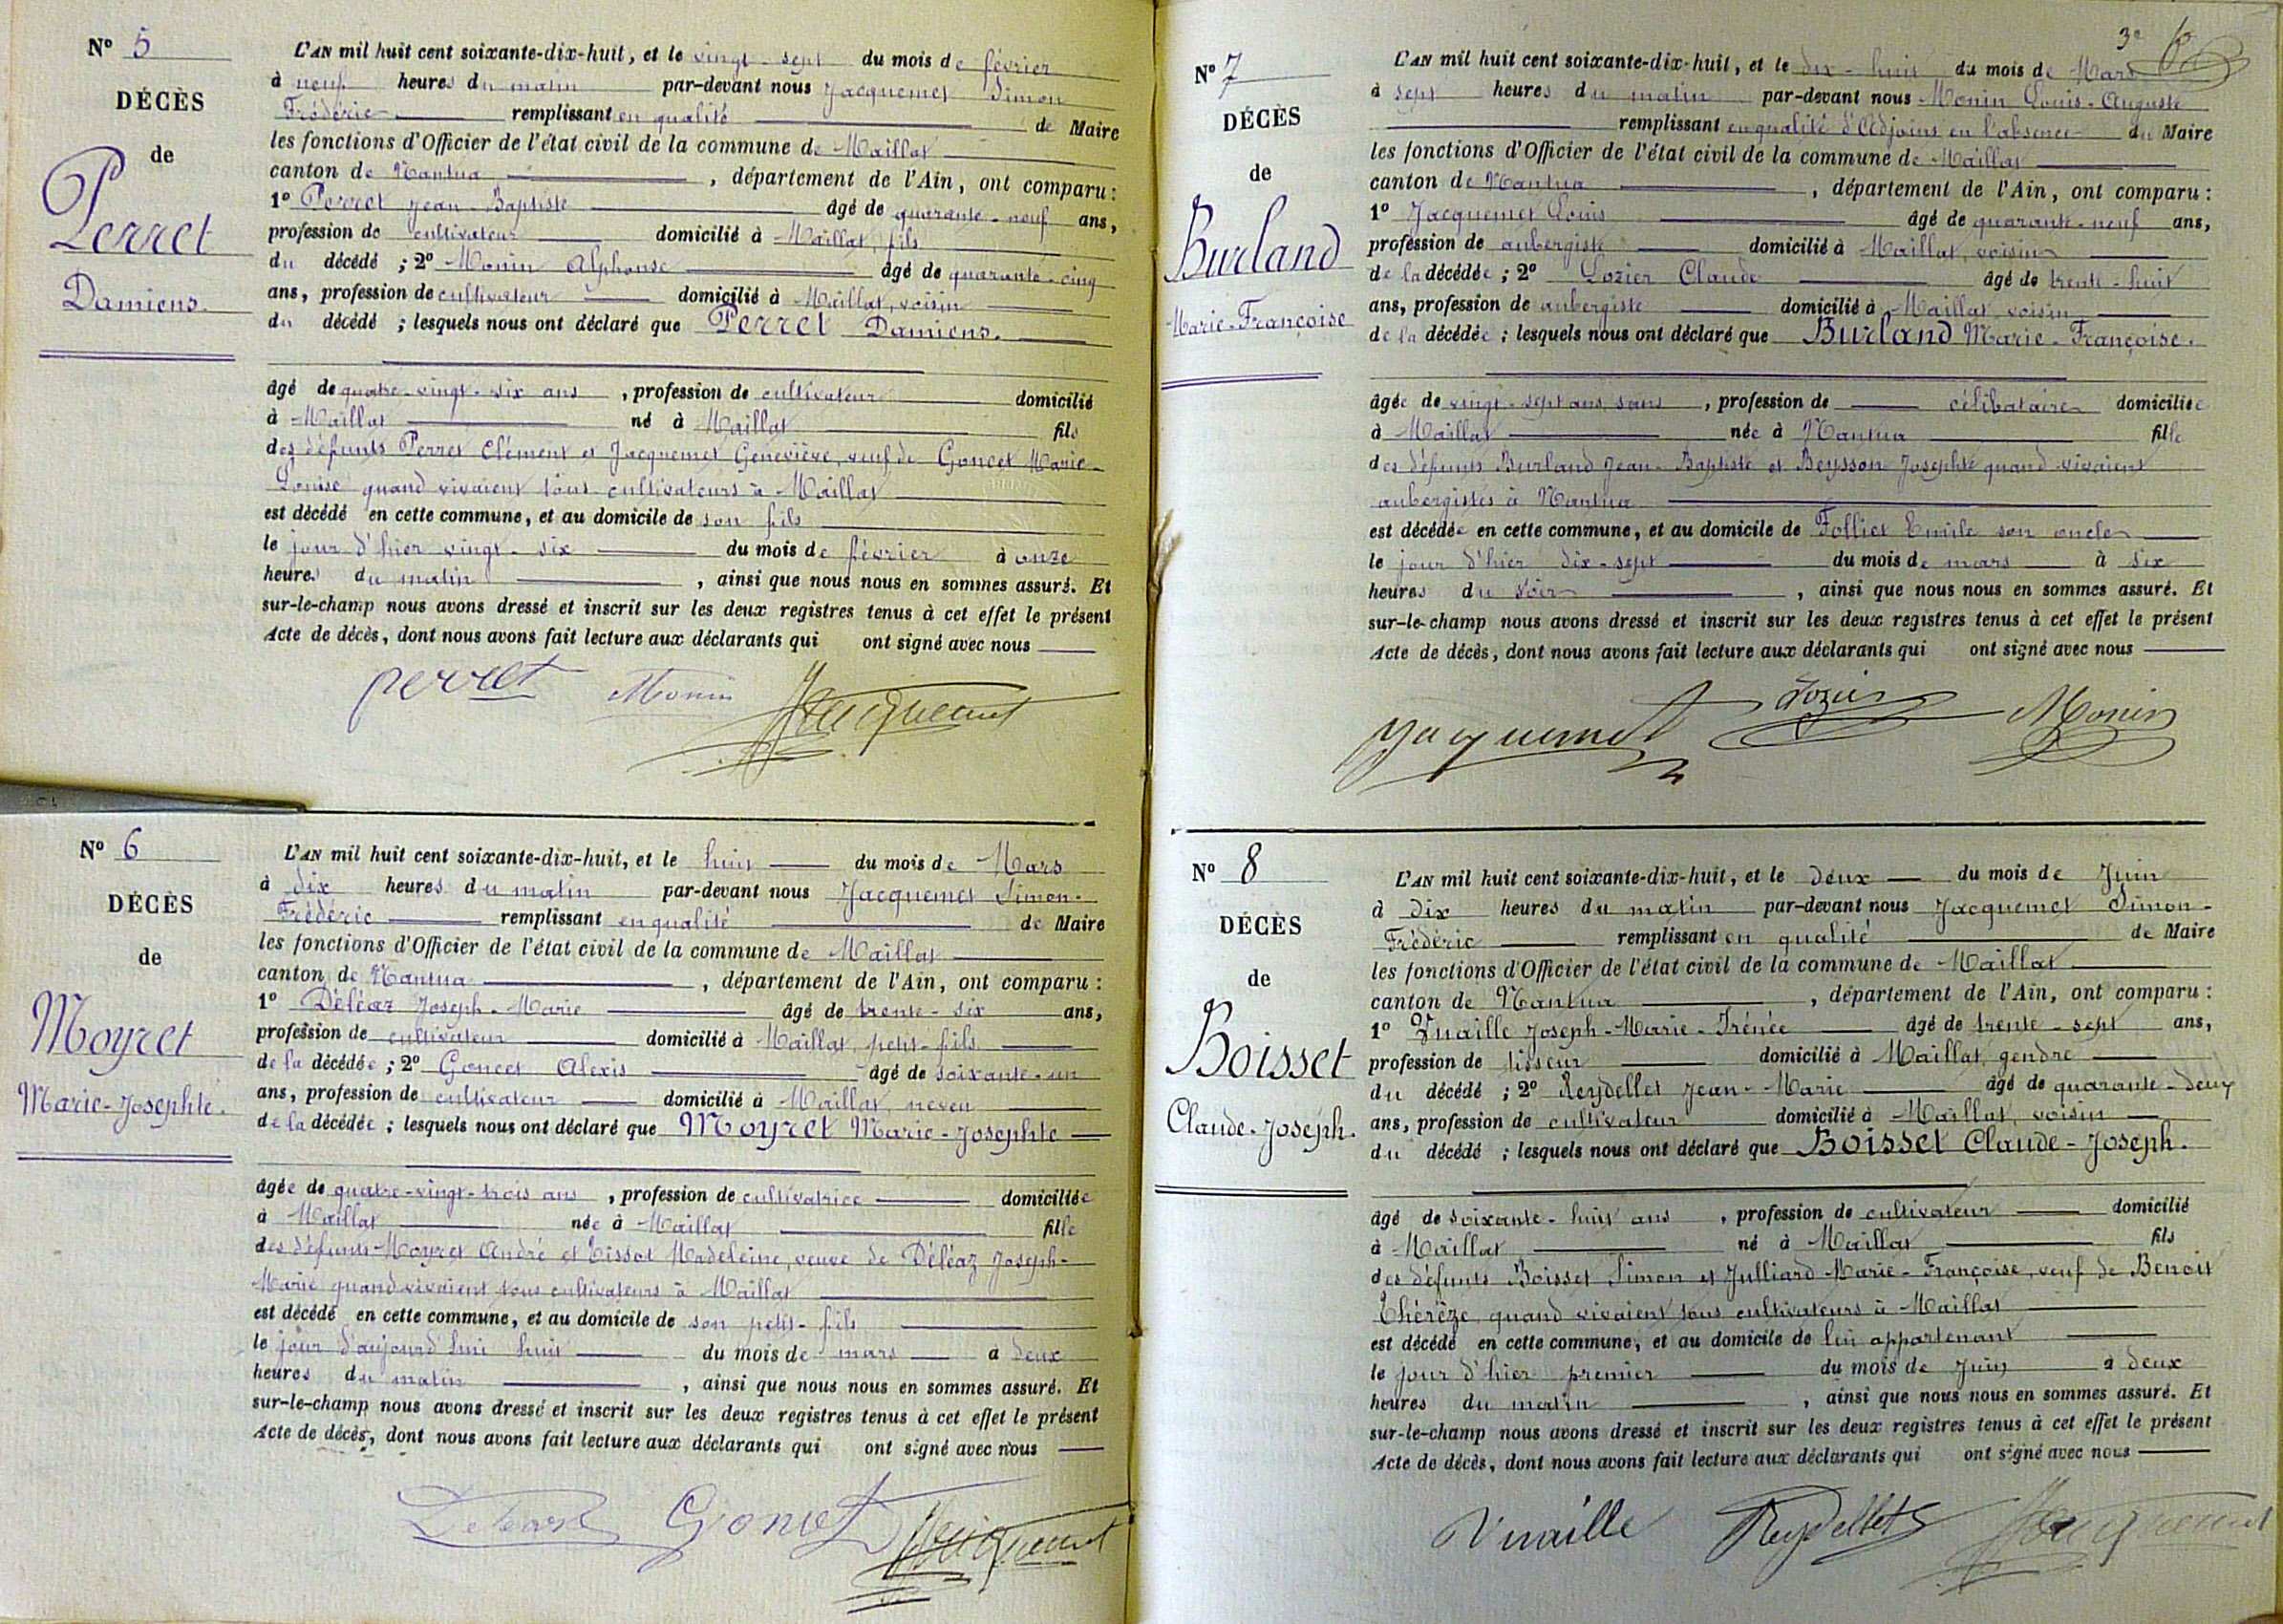 Nº 5
DÉCÈS
de
Perret
Damiens.
L'AN mil huit cent soixante-dix-huit, et le vingt-sept du mois de février
à neuf heures du matin par-devant nous Jacquemet Simon
Frédéric remplissant en qualité de Maire
les fonctions d'Officier de l'état civil de la commune de Maillat
canton de Nantua, département de l'Ain, ont comparu :
1º Perret Jean-Baptiste âgé de quarante-neuf ans,
profession de cultivateur domicilié à Maillat, fils
du décédé ; 2º Monin Alphonse âgé de quarante-cinq
ans, profession de cultivateur domicilié à Maillat, voisin
du décédé ; lesquels nous ont déclaré que Perret Damiens.
âgé de quatre-vingt-six ans, profession de cultivateur domicilié
à Maillat né à Maillat fils
des défunts Perret Clément et Jacquemet Geneviève, veuf de Goncet Marie-
Louise quand vivaient tous cultivateurs à Maillat
est décédé en cette commune, et au domicile de son fils
le jour d'hier vingt-six du mois de février à onze
heures du matin, ainsi que nous nous en sommes assuré. Et
sur-le-champ nous avons dressé et inscrit sur les deux registres tenus à cet effet le présent
Acte de décès, dont nous avons fait lecture aux déclarants qui ont signé avec nous
Perret Monin Jacquemet
Nº 6
DÉCÈS
de
Moyret
Marie-Josephte.
L'AN mil huit cent soixante-dix-huit, et le huit du mois de Mars
à dix heures du matin par-devant nous Jacquemet Simon-
Frédéric remplissant en qualité de Maire
les fonctions d'Officier de l'état civil de la commune de Maillat
canton de Nantua, département de l'Ain, ont comparu :
1º Déléaz Joseph-Marie âgé de trente-six ans,
profession de cultivateur domicilié à Maillat, petit-fils
de la décédée ; 2º Goncet Alexis âgé de soixante-un
ans, profession de cultivateur domicilié à Maillat, neveu
de la décédée ; lesquels nous ont déclaré que Moyret Marie-Josephte
âgée de quatre-vingt-trois ans, profession de cultivatrice domiciliée
à Maillat née à Maillat fille
des défunts Moyret André et Tissot Madeleine, veuve de Déléaz Joseph-
Marie quand vivaient tous cultivateurs à Maillat
est décédé en cette commune, et au domicile de son petit-fils
le jour d'aujourd'hui huit du mois de mars à deux
heures du matin, ainsi que nous nous en sommes assuré. Et
sur-le-champ nous avons dressé et inscrit sur les deux registres tenus à cet effet le présent
Acte de décès, dont nous avons fait lecture aux déclarants qui ont signé avec nous
Goncet Jacquemet
3e
Nº 7
DÉCÈS
de
Burland
Marie-Françoise
L'AN mil huit cent soixante-dix-huit, et le dix-huit du mois de Mars
à sept heures du matin par-devant nous Monin Louis-Auguste
remplissant en qualité d'Adjoint en l'absence du Maire
les fonctions d'Officier de l'état civil de la commune de Maillat
canton de Nantua, département de l'Ain, ont comparu :
1º Jacquemet Louis âgé de quarante-neuf ans,
profession de aubergiste domicilié à Maillat, voisin
de la décédée ; 2º Lozier Claude âgé de trente-huit
ans, profession de aubergiste domicilié à Maillat, voisin
de la décédée ; lesquels nous ont déclaré que Burland Marie-Françoise.
âgée de vingt-sept ans, sans, profession de célibataire domiciliée
à Maillat née à Nantua fille
des défunts Burland Jean-Baptiste et Beysson Josephte quand vivaient
aubergistes à Nantua
est décédée en cette commune, et au domicile de Folliet Emile son oncle
le jour d'hier dix-sept du mois de mars à six
heures du soir, ainsi que nous nous en sommes assuré. Et
sur-le-champ nous avons dressé et inscrit sur les deux registres tenus à cet effet le présent
Acte de décès, dont nous avons fait lecture aux déclarants qui ont signé avec nous
Jacquemet Lozier Monin
Nº 8
DÉCÈS
de
Boisset
Claude-Joseph.
L'AN mil huit cent soixante-dix-huit, et le deux du mois de Juin
à dix heures du matin par-devant nous Jacquemet Simon-
Frédéric remplissant en qualité de Maire
les fonctions d'Officier de l'état civil de la commune de Maillat
canton de Nantua, département de l'Ain, ont comparu :
1º Vuaille Joseph-Marie-Irénée âgé de trente-sept ans,
profession de tisseur domicilié à Maillat, gendre
du décédé ; 2º Reydellet Jean-Marie âgé de quarante-deux
ans, profession de cultivateur domicilié à Maillat, voisin
du décédé ; lesquels nous ont déclaré que Boisset Claude-Joseph.
âgé de soixante-huit ans, profession de cultivateur domicilié
à Maillat né à Maillat fils
des défunts Boisset Simon et Julliard Marie-Françoise, veuf de Benoit
Thérèze, quand vivaient tous cultivateurs à Maillat
est décédé en cette commune, et au domicile de lui appartenant
le jour d'hier premier du mois de Juin à deux
heures du matin, ainsi que nous nous en sommes assuré. Et
sur-le-champ nous avons dressé et inscrit sur les deux registres tenus à cet effet le présent
Acte de décès, dont nous avons fait lecture aux déclarants qui ont signé avec nous
Vuaille Reydellet Jacquemet